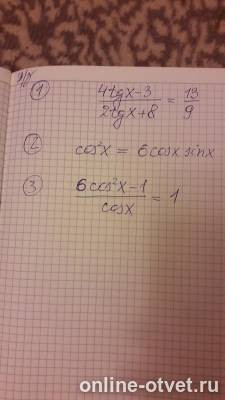 Д/Р
① (4tgx-3)/(2tgx+8) = 13/9
② cos²x = 6cosx sinx
③ (6cos²x-1)/cosx = 1
online-otvet.ru